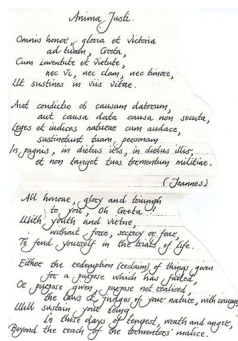 Anima Justi.
Omnis honor, gloria et victoria
ad tuam, Greta,
Cum iuventute et virtute,
nec vi, nec clam, nec timore,
Ut sustines in viis vitae.
Aut condictio ob causam datorum,
aut causa data causa non secuta,
Leges et iudices naturae cum audace,
sustinebunt tuam personam
In pugnis, in diebus irae, in diebus illis,
et non tanget tuas tormentum militiae.
(Joannes)
All honour, glory and triumph
to you, Oh Greta
With youth and virtue,
without force, secrecy or fear,
To fend yourself in the roads of life.
Either the redemption (reclaim) of things given
for a purpose which has failed,
Or purpose given, purpose not realised,
the laws & judges of your nature, with courage
Will sustain your being,
In these days of tempest, wrath and anger,
Beyond the reach of the tormentors' malice.